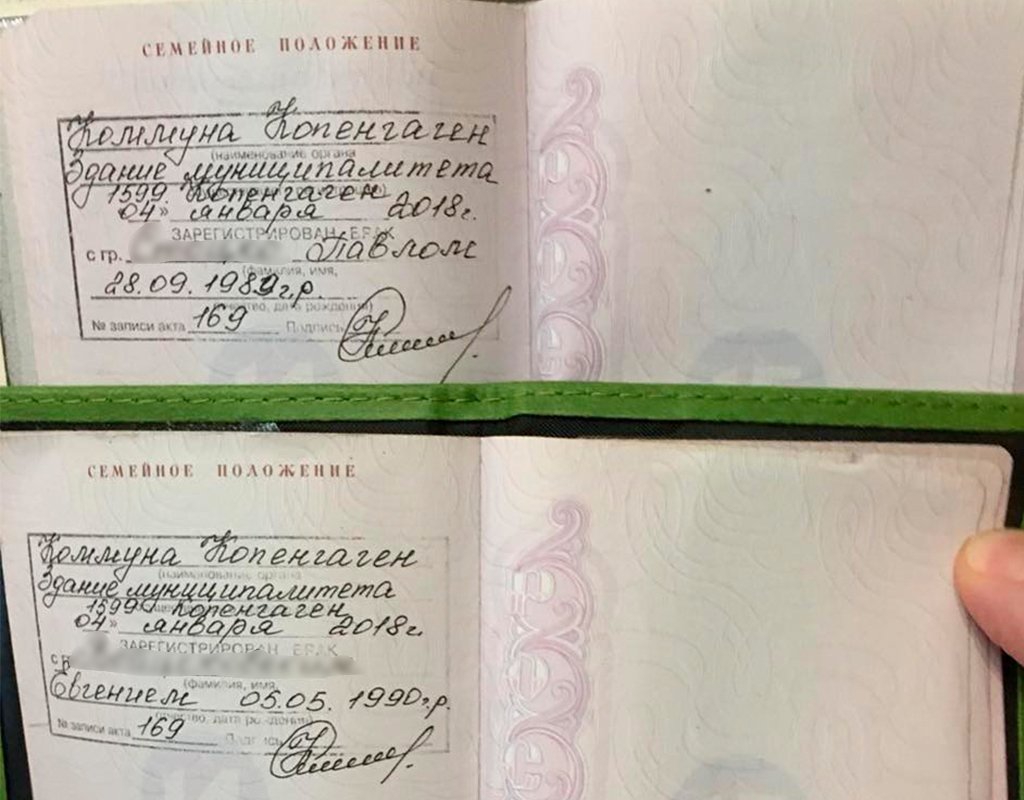 СЕМЕЙНОЕ ПОЛОЖЕНИЕ
Коммуна Копенгаген
(наименование органа
Здание муниципалитета
1599. Копенгаген
04» января 2018г.
ЗАРЕГИСТРИРОВАН БРАК
с гр. Павлом
(фамилия, имя,
28.09.1989г.р.
отчество, дата рождения)
№ записи акта 169 Подпись
СЕМЕЙНОЕ ПОЛОЖЕНИЕ
Коммуна Копенгаген
(наименование органа
Здание муниципалитета
1599 Копенгаген
04» января 2018г.
ЗАРЕГИСТРИРОВАН БРАК
с г
(фамилия, имя,
Евгением 05.05.1990г.р.
отчество, дата рождения)
№ записи акта 169 Подпись